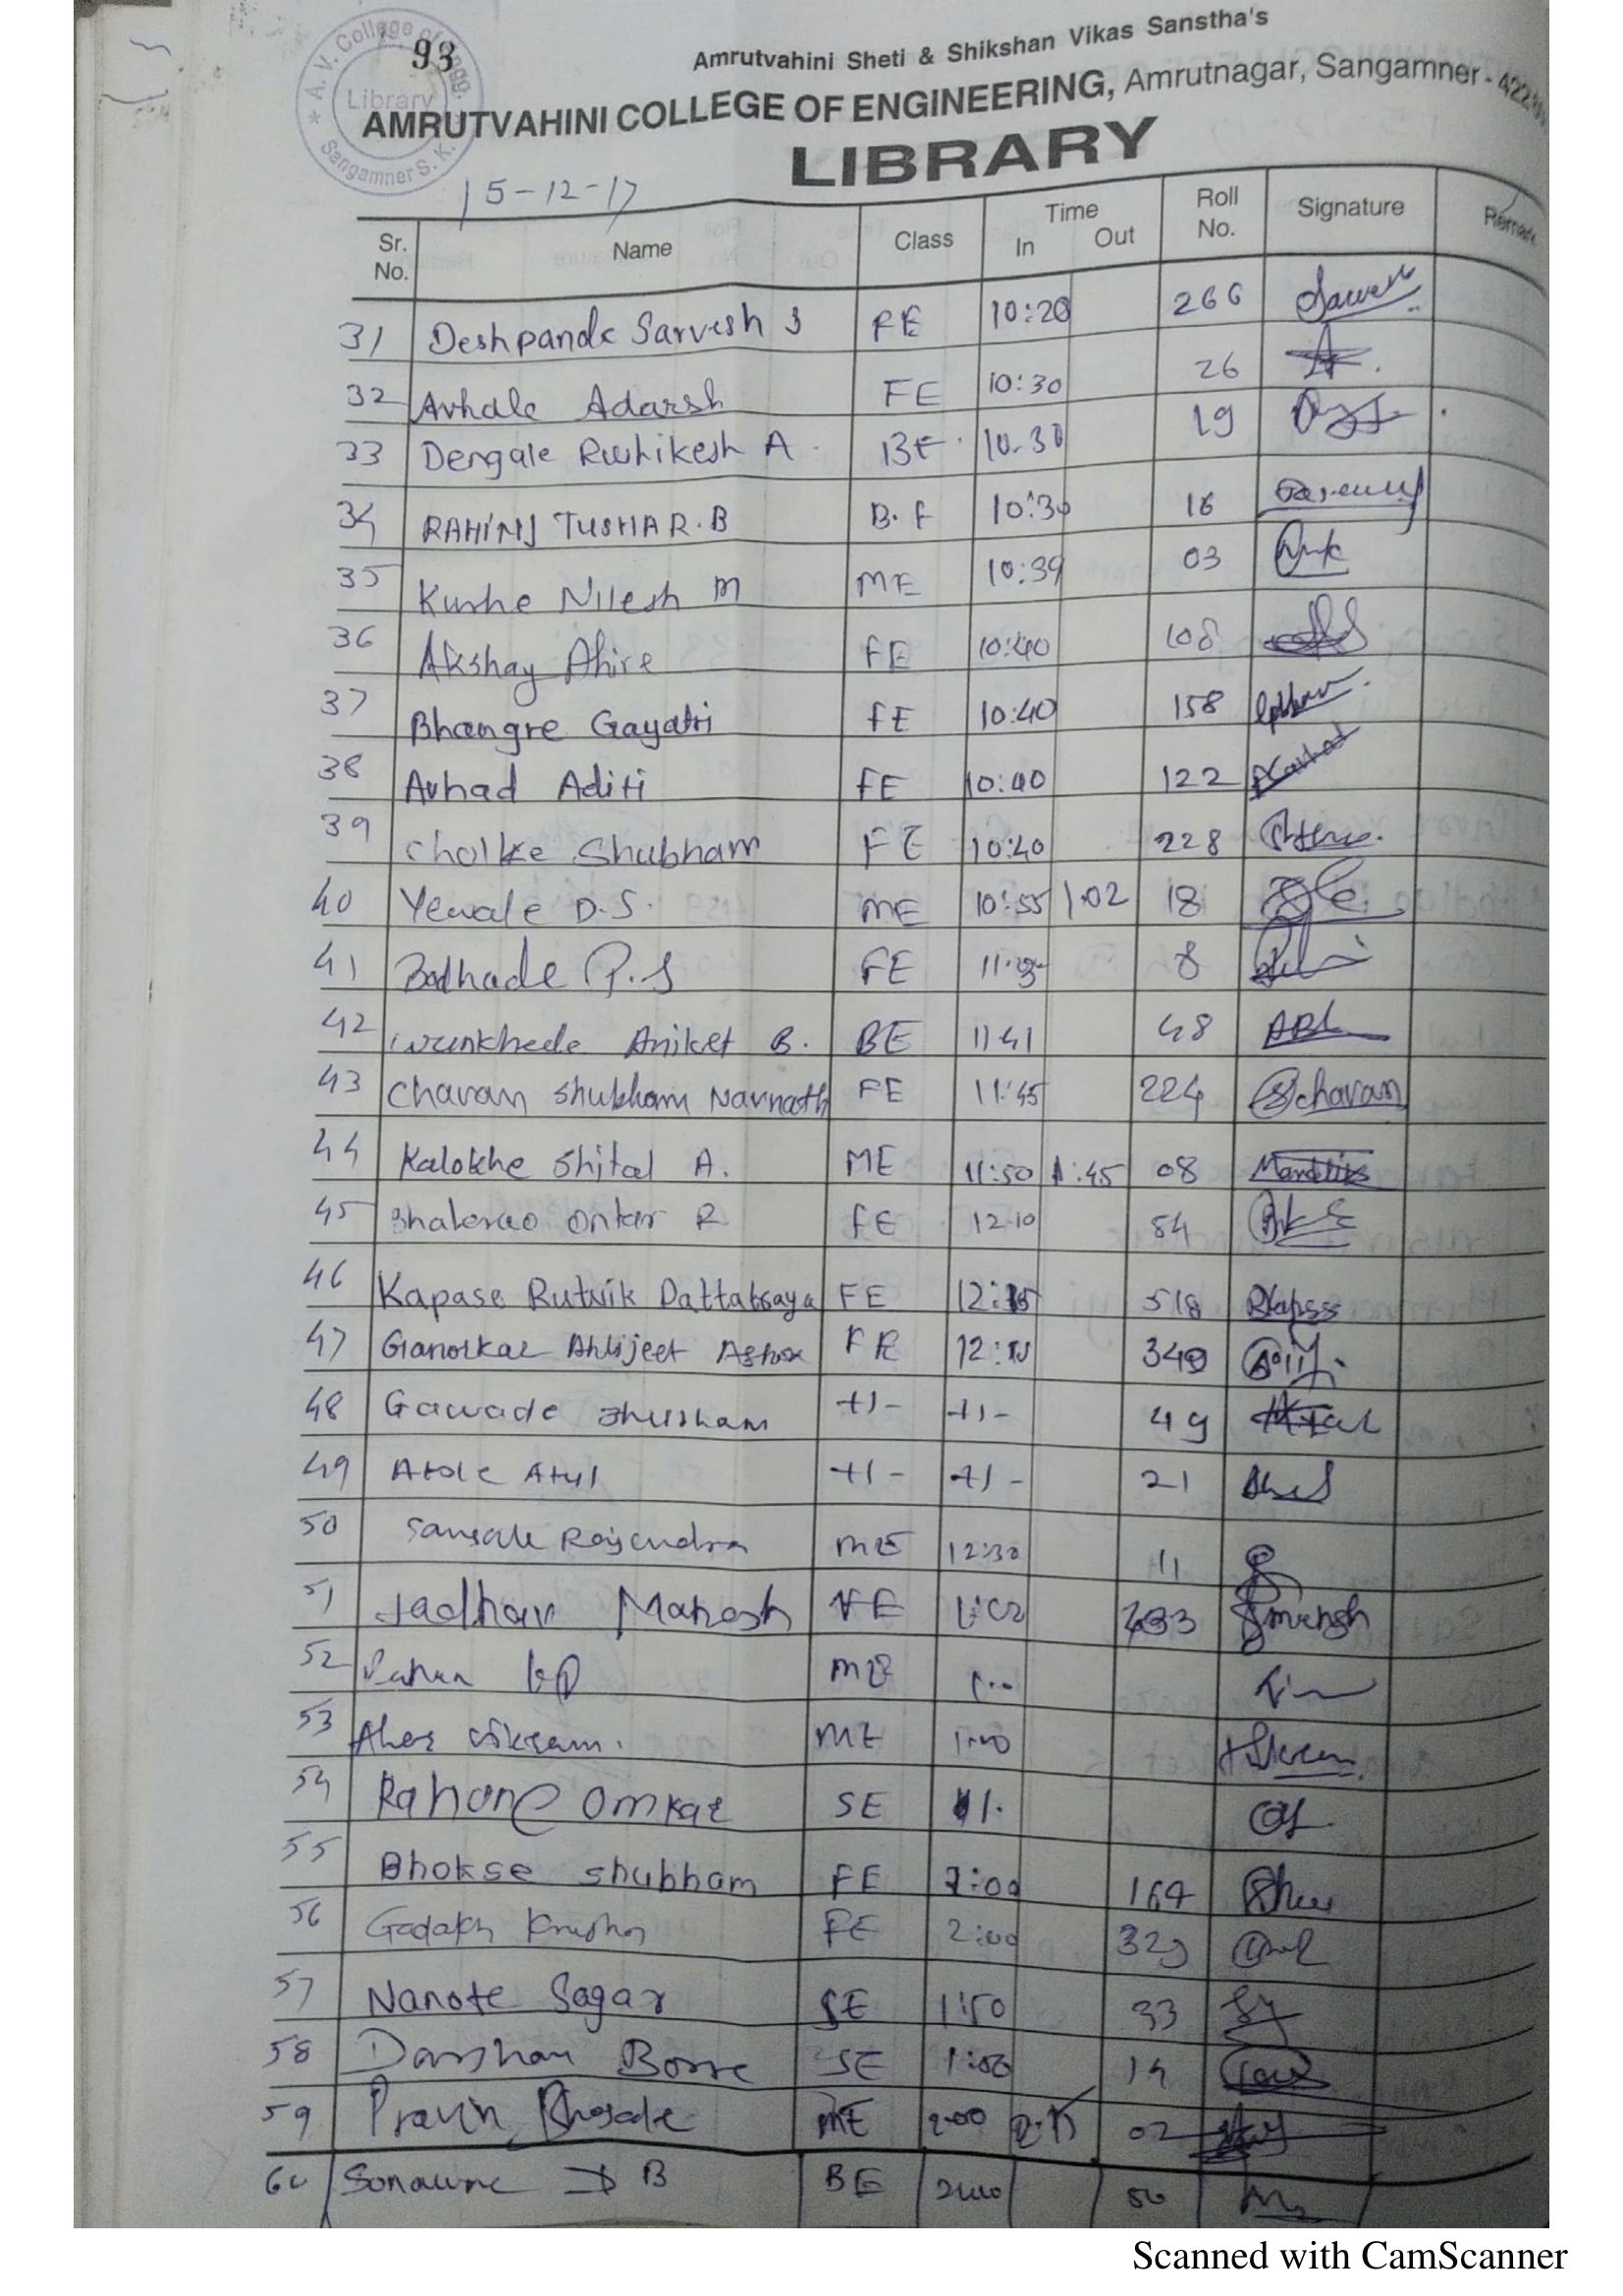 93
A. V. College of Engg.
Library
Sangamner S. K.
Amrutvahini Sheti & Shikshan Vikas Sanstha's
AMRUTVAHINI COLLEGE OF ENGINEERING, Amrutnagar, Sangamner -
LIBRARY
15-12-17
Sr. No. Name Class Time In Out Roll No. Signature Remark
31 Deshpande Sarvesh S FE 10:20 266
32 Avhale Adarsh FE 10:30 26
33 Dengale Rushikesh A. BE 10.30 19
34 RAHINJ TUSHAR.B B.E 10:30 16
35 Kushe Nilesh M ME 10:39 03
36 Akshay Ahire FE 10:40 108
37 Bhangre Gayatri FE 10:40 158
38 Avhad Aditi FE 10:40 122
39 Cholke Shubham FE 10:40 228
40 Yewale D.S. ME 10:55 1.02 18
41 P.S FE 8
42 Wankhede Aniket B. BE 1141 48
43 Chavan Shubham Navnath FE 11:45 224 Schavan
44 Kalokhe Shital A. ME 11:50 1:45 08
45 Bhalerao Onkar R. FE 12.10 54
46 Kapase Rutwik Dattatraya FE 12:15 518 Rkapse
47 Ganorkar Abhijeet Ashok FE 349
48 Gawade Shubham -11- -11- 49
49 Atole Atul -11- -11- 21
50 Rajendra ME 12:30 11
51 Jadhav Mahesh FE 1:02
52 ME
53 Aher Vikram. ME 1:00
54 Rahane Omkar SE
55 Bhokse Shubham FE 2:00 164
56 Gadakh Krushna FE 2:00 329
57 Nanote Sagar SE 1:50 33
58 Darshan Borse SE 14
59 Pravin Bhosale ME 2:00 02
60 Sonawane B BE 50
Scanned with CamScanner